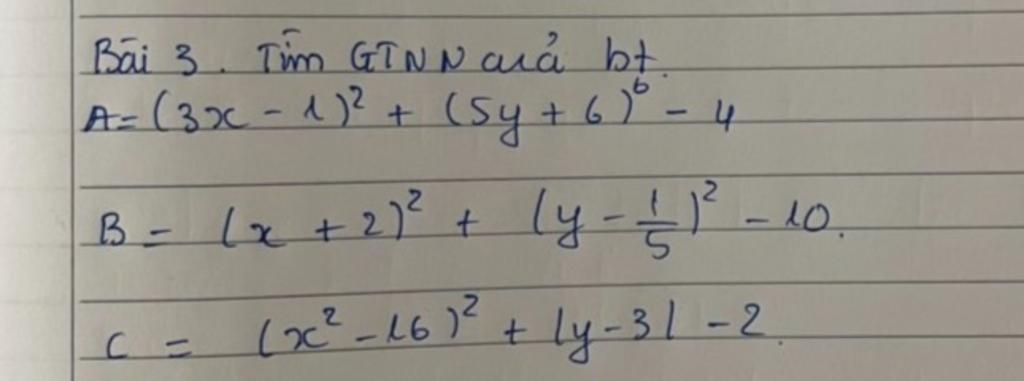 Bài 3. Tìm GTNN cuả bt.
A = (3x - 1)² + (5y + 6)⁶ - 4
B = (x + 2)² + (y - 1/5)² - 10.
C = (x² - 16)² + |y - 3| - 2.